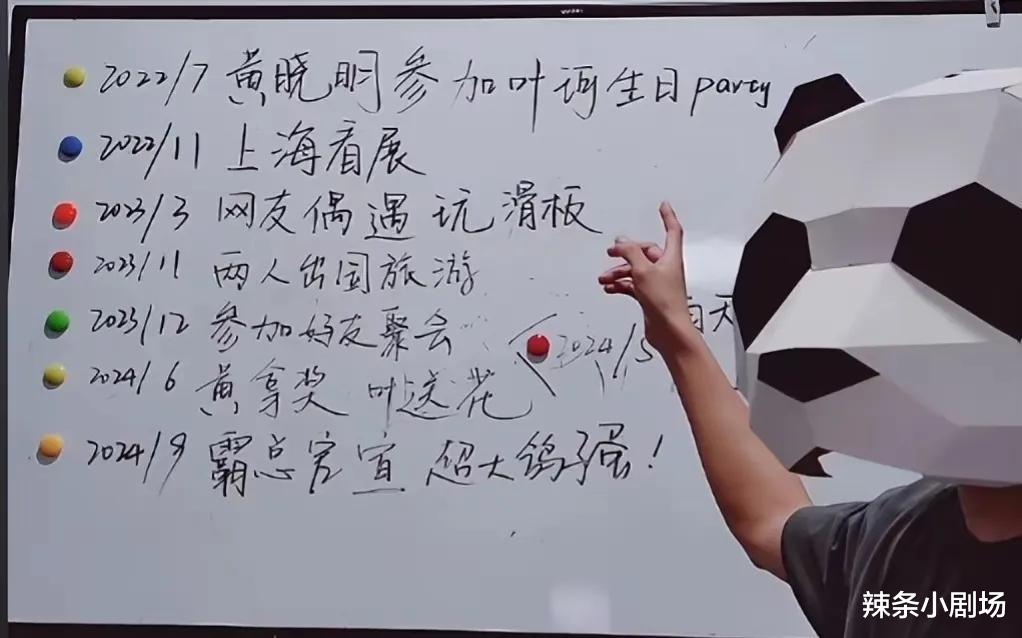 2022/7 黄晓明参加叶珂生日party
2022/11 上海看展
2023/3 网友偶遇玩滑板
2023/11 两人出国旅游
2023/12 参加好友聚会
2024/5 雨天
2024/6 黄拿奖 叶送花
2024/9 霸总官宣 超大鸽子蛋!
辣条小剧场